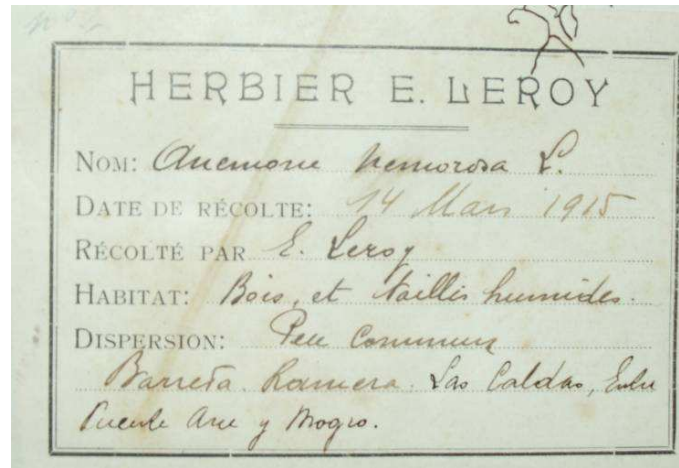 HERBIER E. LEROY
NOM: Anemone nemorosa L.
DATE DE RÉCOLTE: 14 Mars 1915
RÉCOLTÉ PAR E. Leroy
HABITAT: Bois, et taillis humides.
DISPERSION: Peu Commun
Barreda. Las Caldas, Entre
Puente Arce y Mogro.